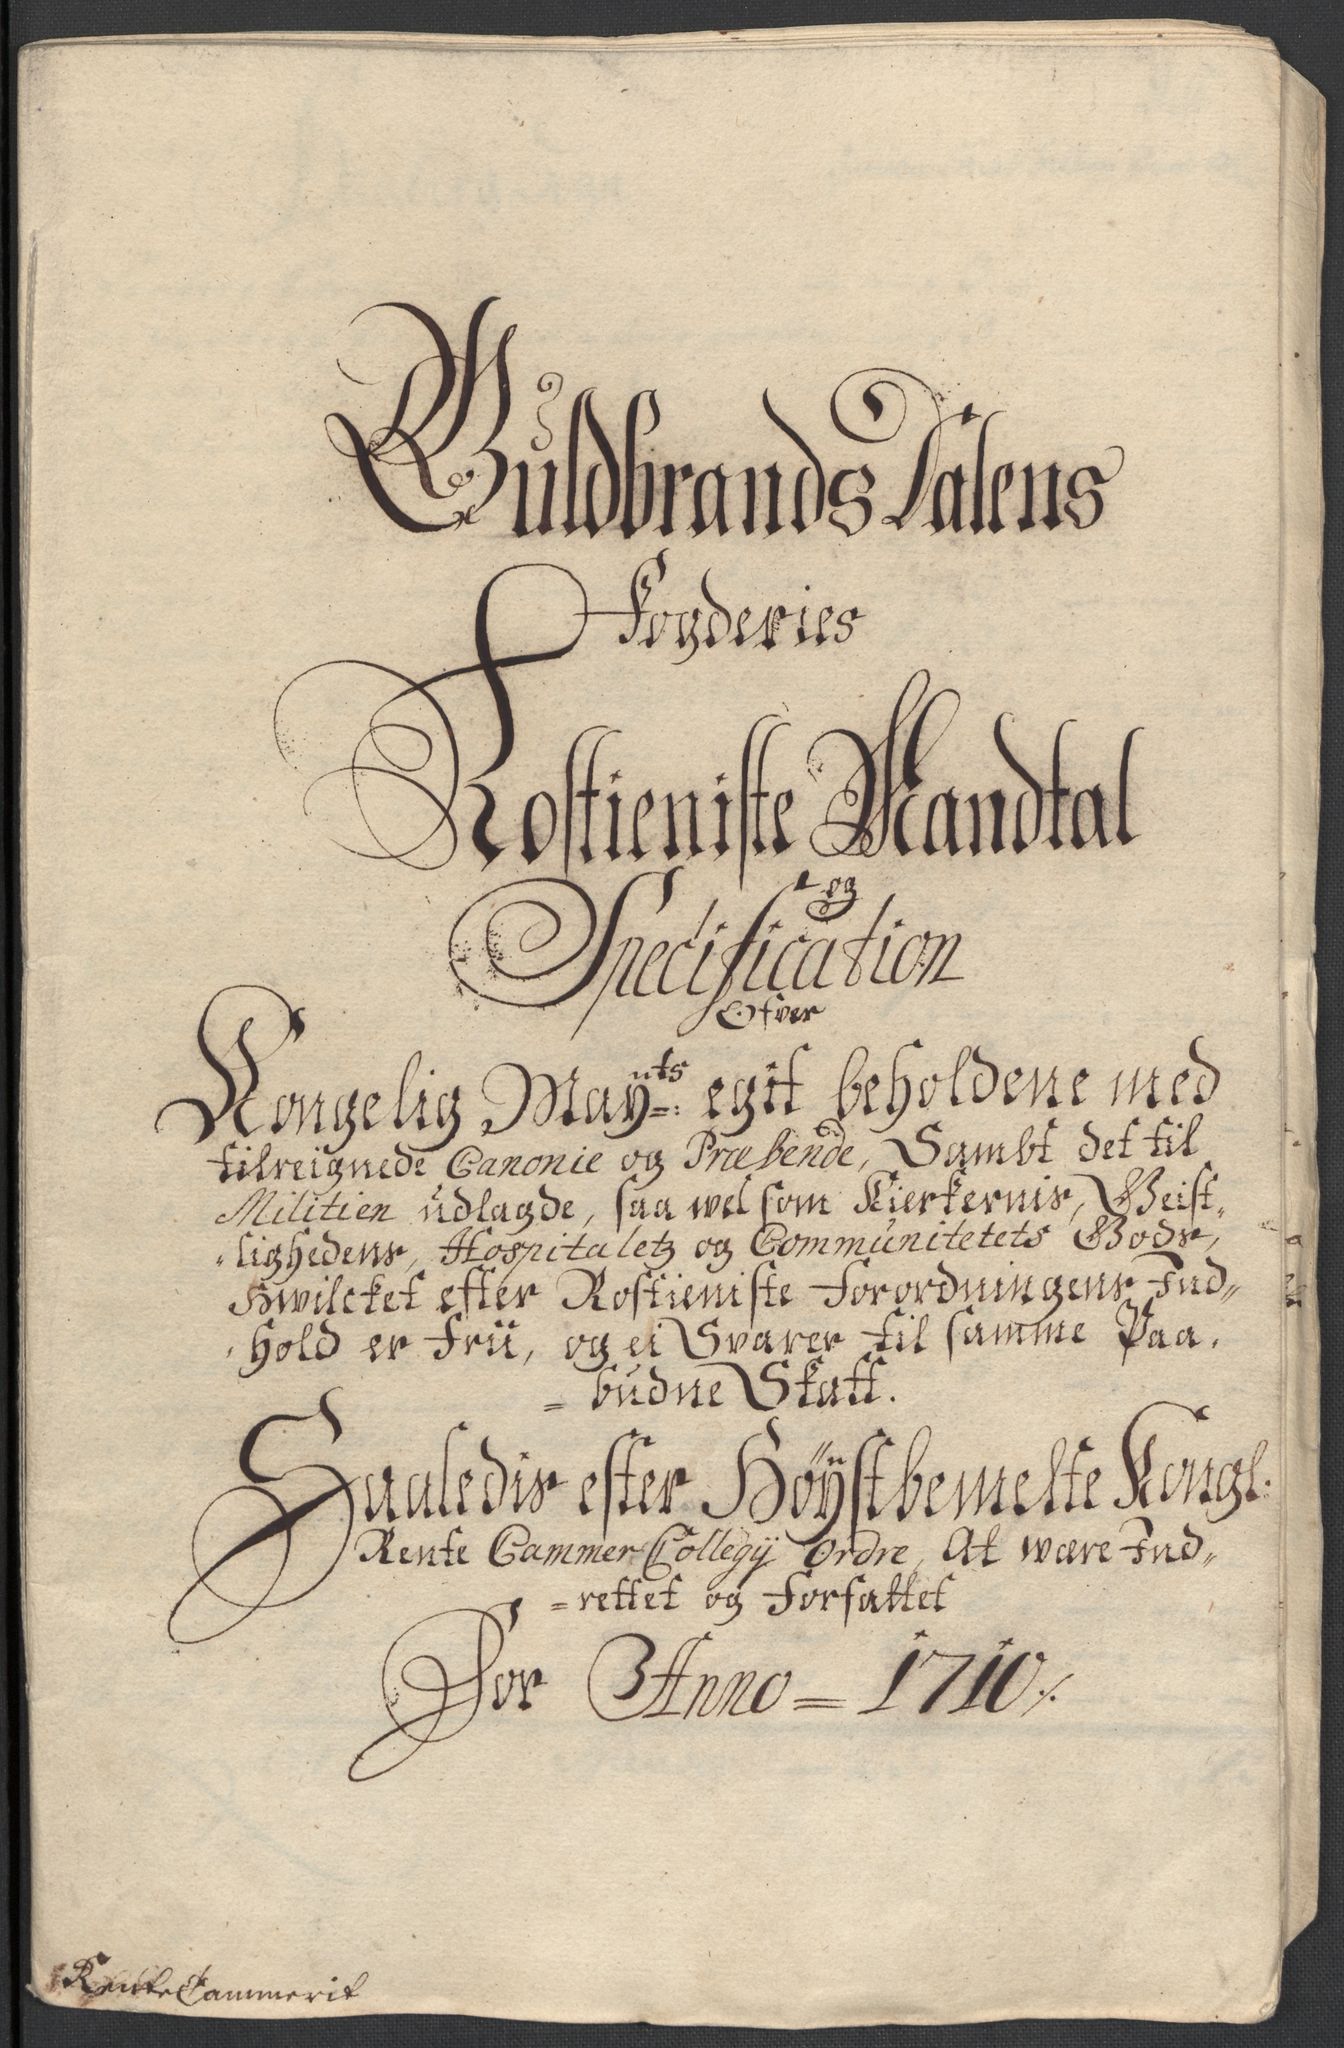 Guldbrands Dalens
Fogderies
Rostieniste Mandtal
og
Specification
Ofver
Kongelig Mayts: egit beholdene med
tilreignede Canonie og Præbende, Sambt det til
Militien udlagde, saa wel som Kierkernis, Geist-
-lighedens, Hospitaletz og Communitetets Gods,
Hwilcket efter Rostieniste Forordningens Ind-
-hold er frii, og ei Svarer til samme Paa-
=budne Skatt.
Saaledis efter Höystbemelte Kongl.
Rente Cammer Collegij Ordre, At wære Ind-
=rettet og forfattet
For Anno = 1710 ⁒
Rentte Cammerit